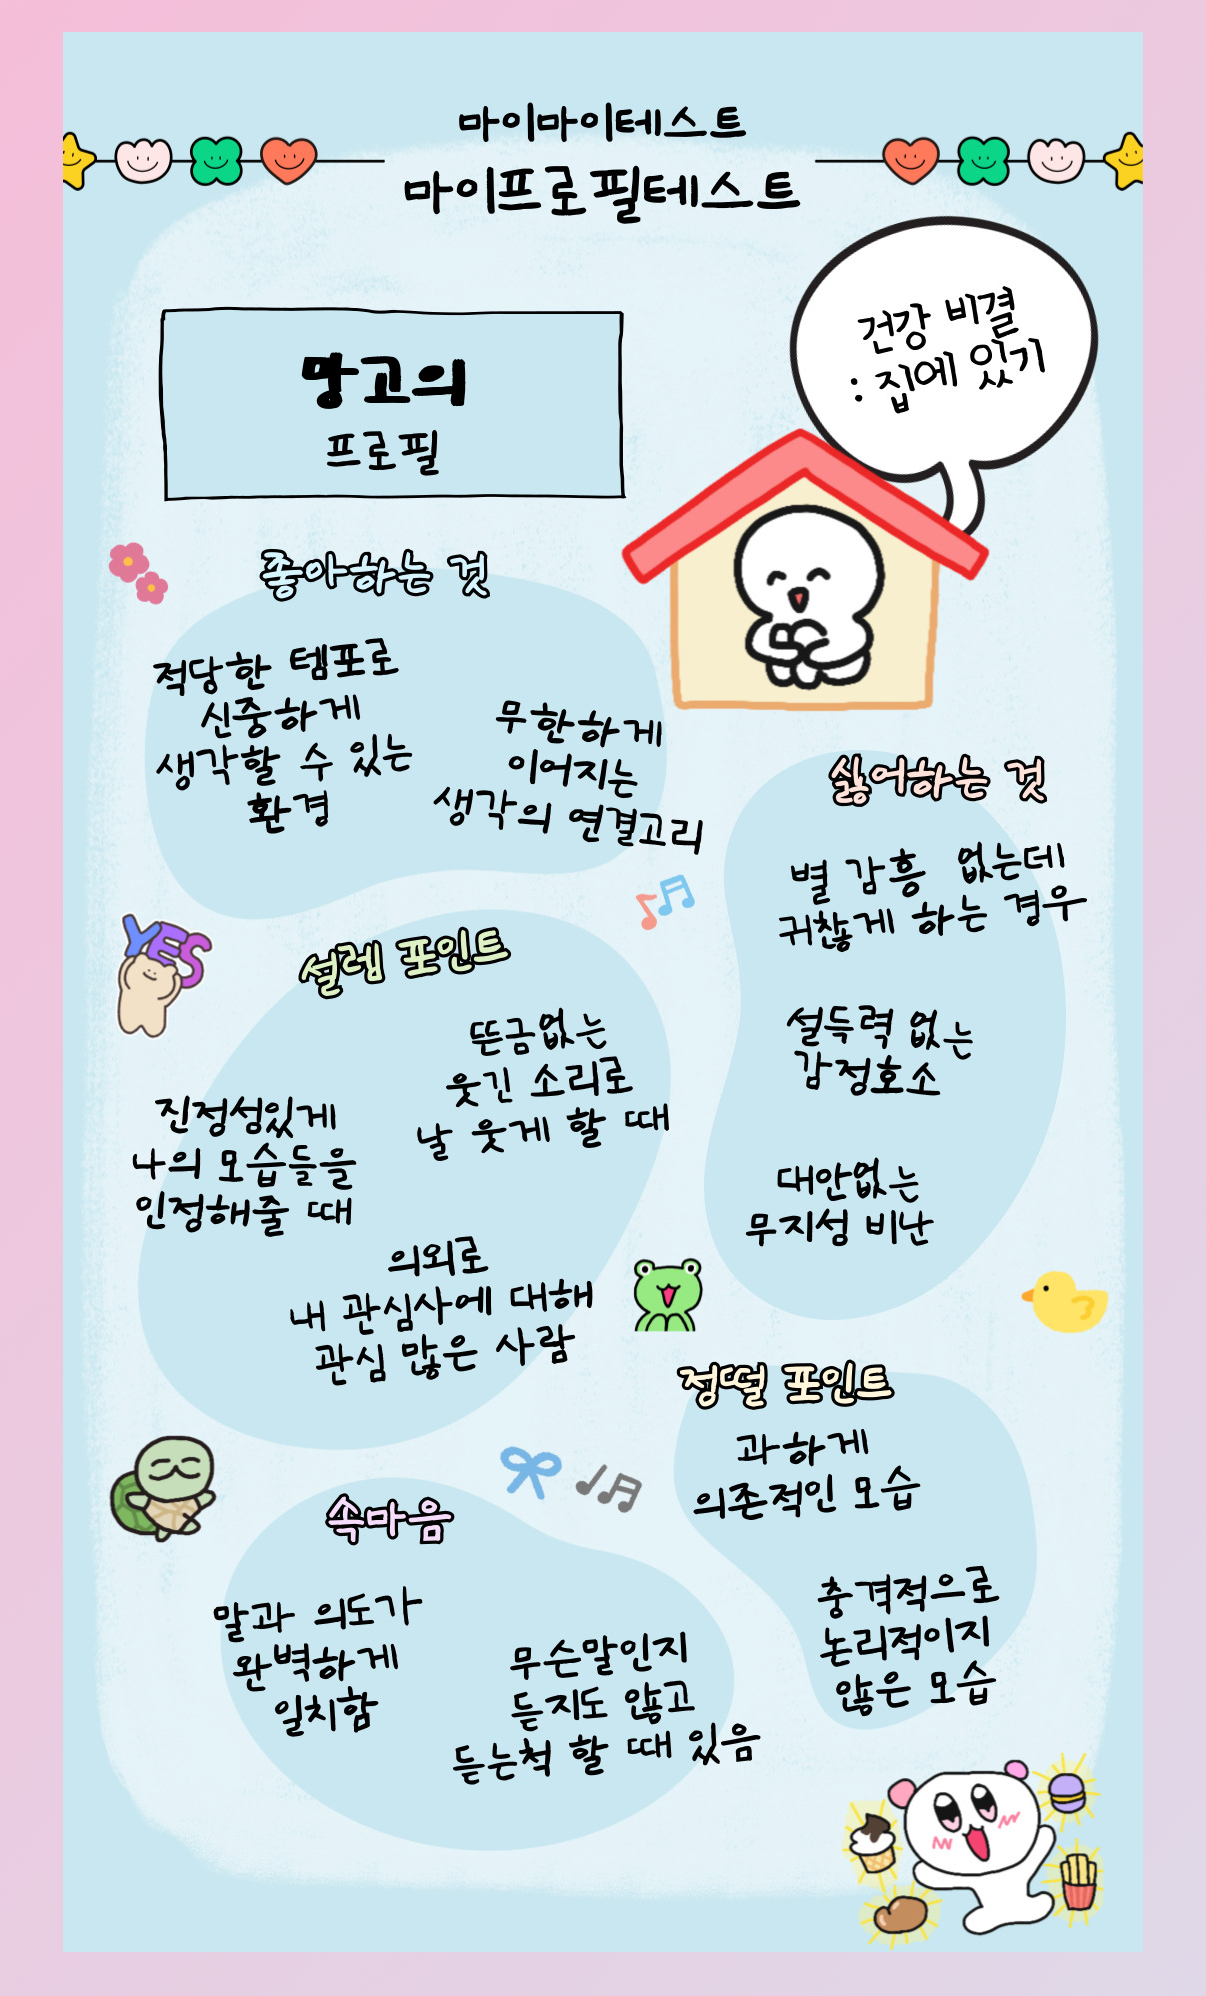 마이마이테스트
마이프로필테스트
건강 비결
: 집에 있기
망고의
프로필
좋아하는 것
적당한 템포로
신중하게
생각할 수 있는
환경
무한하게
이어지는
생각의 연결고리
싫어하는 것
별 감흥 없는데
귀찮게 하는 경우
설득력 없는
감정호소
대안없는
무지성 비난
YES
설렘 포인트
뜬금없는
웃긴 소리로
날 웃게 할 때
진정성있게
나의 모습들을
인정해줄 때
의외로
내 관심사에 대해
관심 많은 사람
정떨 포인트
과하게
의존적인 모습
충격적으로
논리적이지
않은 모습
속마음
말과 의도가
완벽하게
일치함
무슨말인지
듣지도 않고
듣는척 할 때 있음